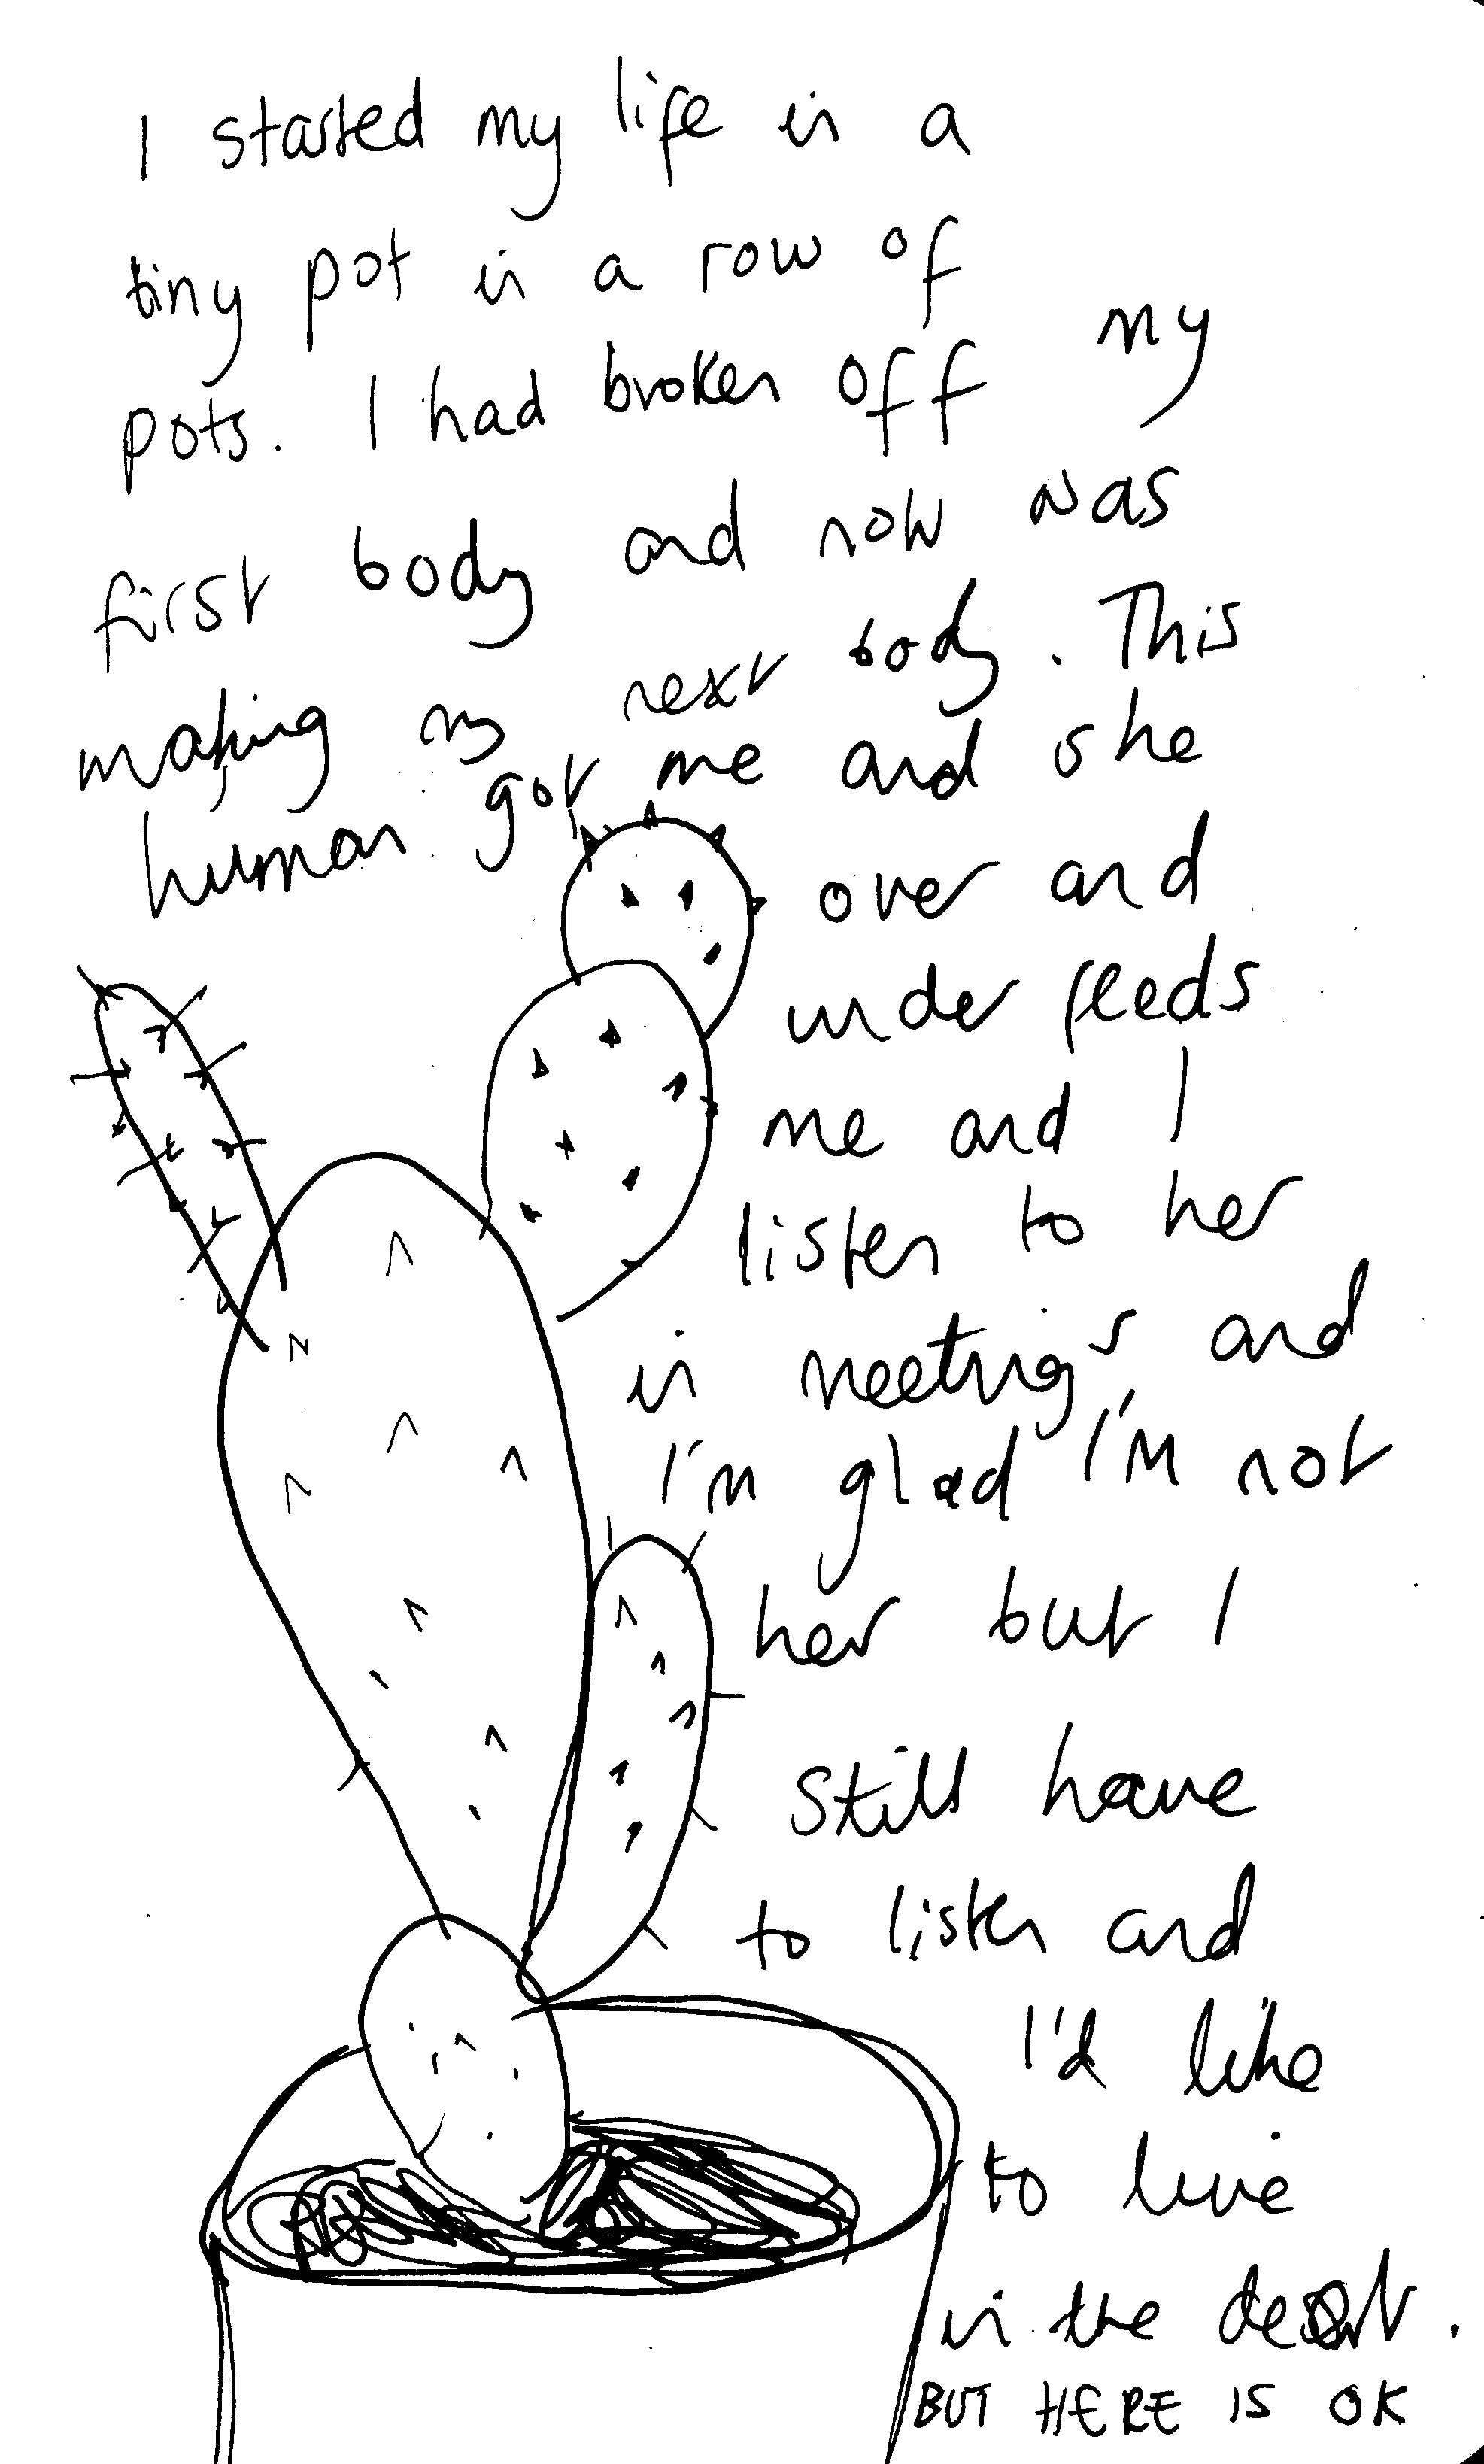 I started my life in a
tiny pot in a row of
pots. I had broken off my
first body and now was
making my next body. This
human got me and she
over and
under feeds
me and I
listen to her
in meetings and
I'm glad I'm not
her but I
still have
to listen and
I'd like
to live
in the desert.
BUT HERE IS OK